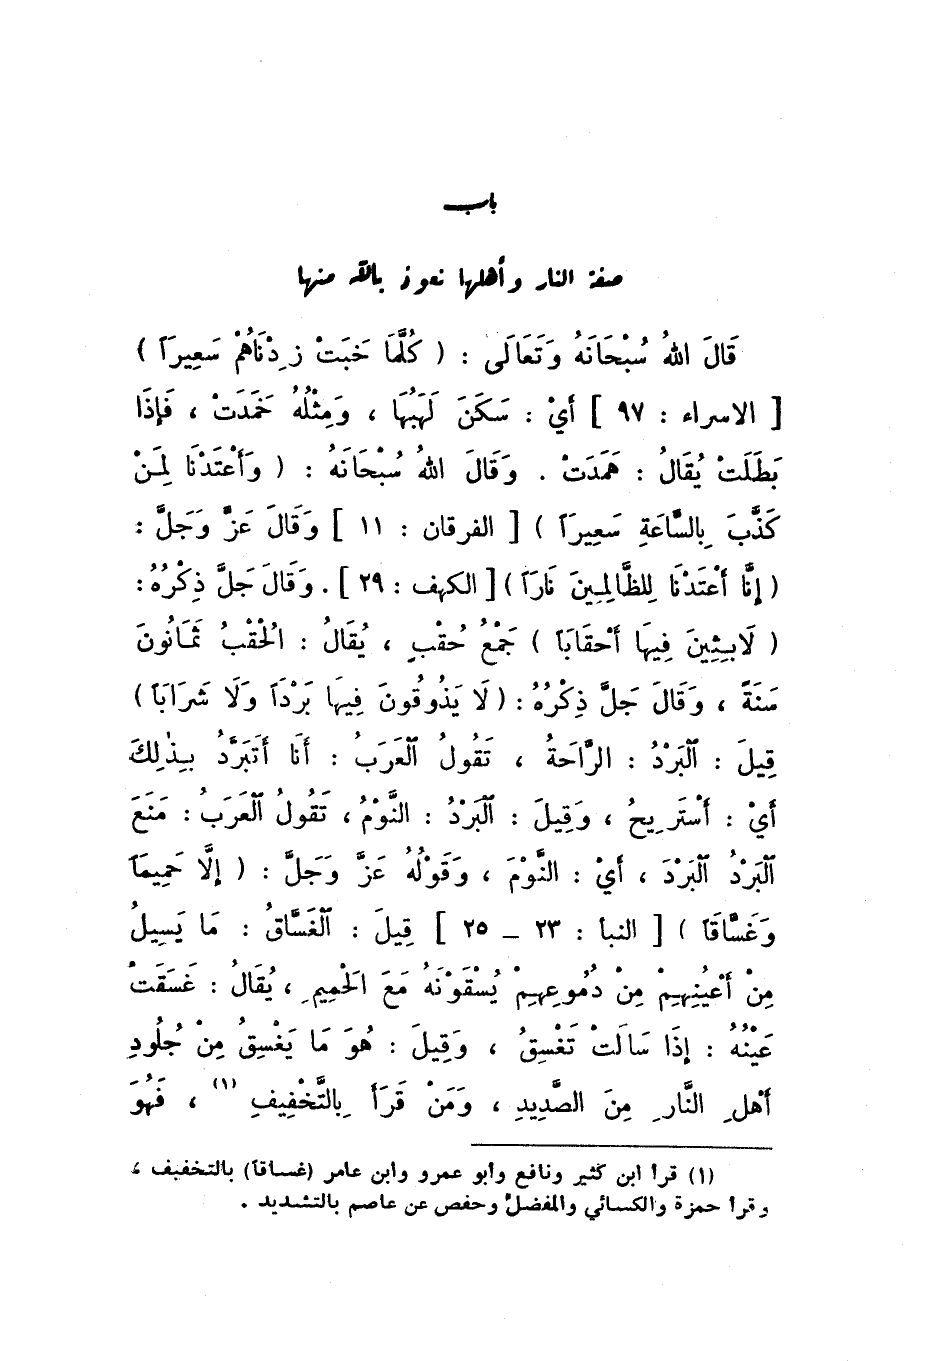 باب
صفة النار وأهلها نعوذ بالله منها
قَالَ اللهُ سُبْحَانَهُ وَتَعَالَى : ( كُلَّمَا خَبَتْ زِدْنَاهُمْ سَعِيرَاً )
[ الاسراء : ٩٧ ] أَيْ : سَكَنَ لَهَبُهَا ، وَمِثْلُهُ خَمَدَتْ ، فَإِذَا
بَطَلَتْ يُقَالُ : هَمَدَتْ . وَقَالَ اللهُ سُبْحَانَهُ : ( وَأَعْتَدْنَا لِمَنْ
كَذَّبَ بِالسَّاعَةِ سَعِيرَاً ) [ الفرقان : ١١ ] وَقَالَ عَزَّ وَجَلَّ :
( إِنَّا أَعْتَدْنَا لِلظَّالِمِينَ نَارَاً ) [ الكهف : ٢٩ ] . وَقَالَ جَلَّ ذِكْرُهُ :
( لَابِثِينَ فِيهَا أَحْقَابَاً ) جَمْعُ حُقْبٍ ، يُقَالُ : الْحُقْبُ ثَمَانُونَ
سَنَةً ، وَقَالَ جَلَّ ذِكْرُهُ : ( لَا يَذُوقُونَ فِيهَا بَرْدَاً وَلَا شَرَابَاً )
قِيلَ : اَلْبَرْدُ : الرَّاحَةُ ، تَقُولُ اَلْعَرَبُ : أَنَا أَتَبَرَّدُ بِذٰلِكَ
أَيْ : أَسْتَرِيحُ ، وَقِيلَ : اَلْبَرْدُ : النَّوْمُ ، تَقُولُ اَلْعَرَبُ : مَنَعَ
اَلْبَرْدُ اَلْبَرْدَ ، أَيْ : النَّوْمَ ، وَقَوْلُهُ عَزَّ وَجَلَّ : ( إِلَّا حَمِيمَاً
وَغَسَّاقَاً ) [ النبأ : ٢٣ – ٢٥ ] قِيلَ : اَلْغَسَّاقُ : مَا يَسِيلُ
مِنْ أَعْيُنِهِمْ مِنْ دُمُوعِهِمْ يُسْقَوْنَهُ مَعَ الْحَمِيمِ ، يُقَالُ : غَسَقَتْ
عَيْنُهُ : إِذَا سَالَتْ تَغْسِقُ ، وَقِيلَ : هُوَ مَا يَغْسِقُ مِنْ جُلُودِ
أَهْلِ النَّارِ مِنَ الصَّدِيدِ ، وَمَنْ قَرَأَ بِالتَّخْفِيفِ (١) ، فَهُوَ
(١) قرأ ابن كثير ونافع وأبو عمرو وابن عامر (غساقاً) بالتخفيف ،
وقرأ حمزة والكسائي والمفضل وحفص عن عاصم بالتشديد .